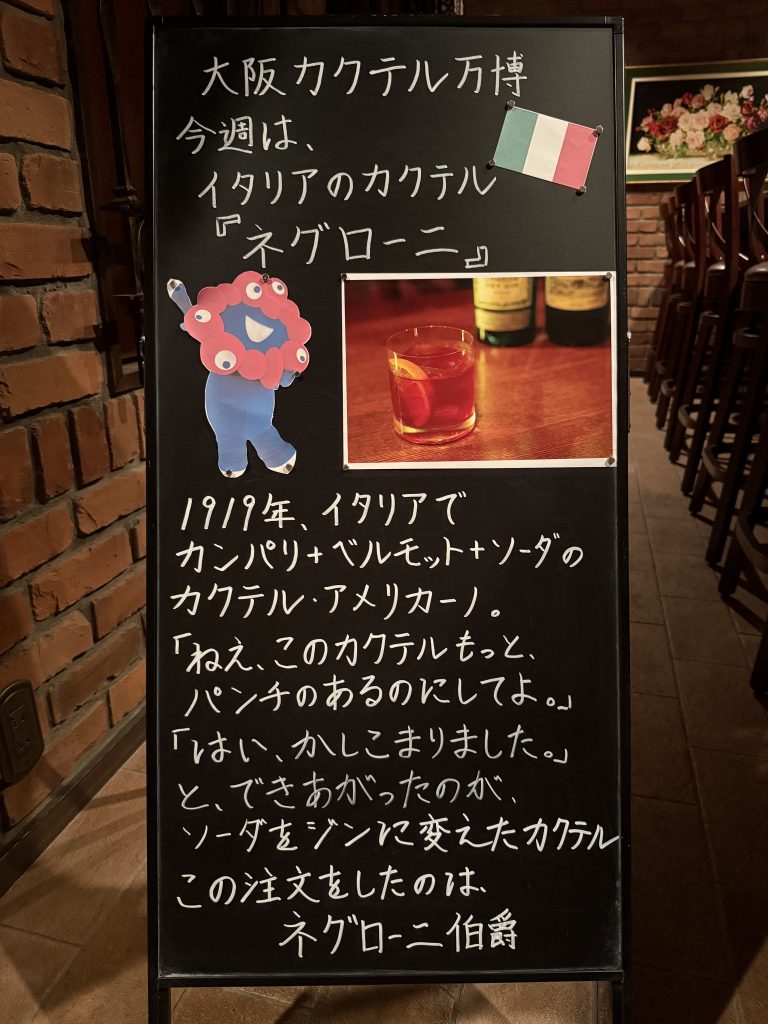 大阪カクテル万博
今週は、
イタリアのカクテル
『ネグローニ』
1919年、イタリアで
カンパリ+ベルモット+ソーダの
カクテル・アメリカーノ。
「ねえ、このカクテルもっと、
パンチのあるのにしてよ。」
「はい、かしこまりました。」
と、できあがったのが、
ソーダをジンに変えたカクテル
この注文をしたのは、
ネグローニ伯爵